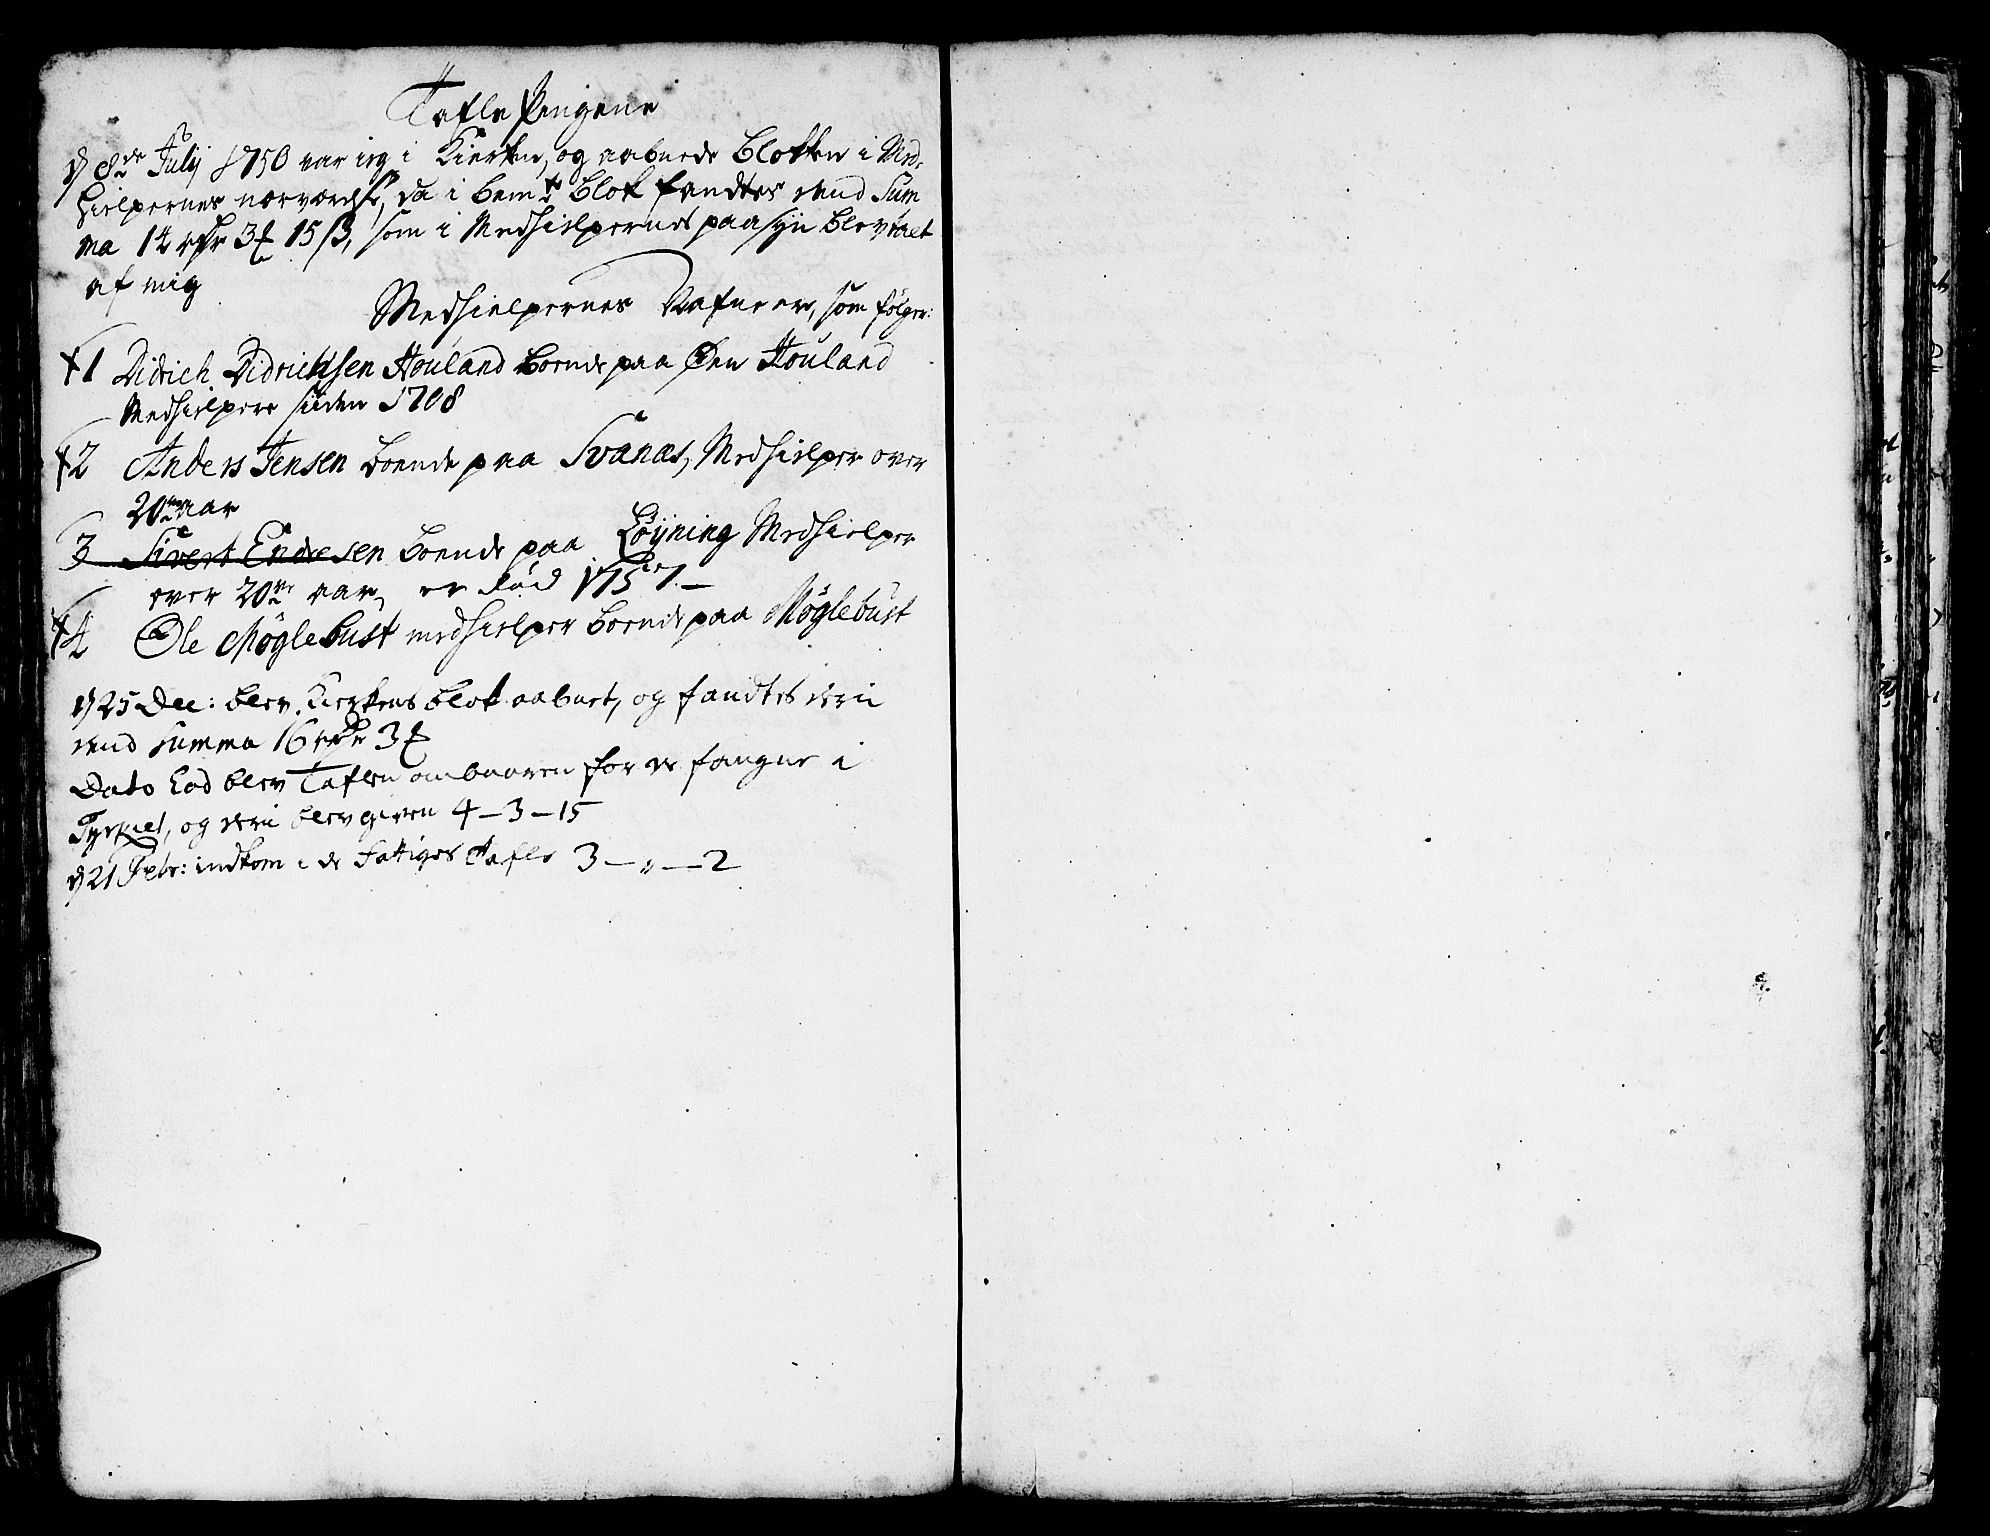 Tafle Pengene
d 8de July 1750 var ieg i Kierken, og aabnede Blokken i Med-
hielpernes nærværelse, da i bemte Blok fandtes end Sum
ma 14 rdr 3 ₰ 15 ß, som i Medhielpernes paasyn blev talt
af mig
Medhielpernes Nafne ere, som følger:
†1 Didrich Didrichsen Houland boende paa Øen Houland
Medhielpere siiden 1708
†2 Anders Jensen boende paa Svanøs, Medhielper over
20ve aar
3 Sivert Endresen boende paa Løyning Medhielper
over 20ve aar, er død 1757.—
†4 Ole Møglebust medhielper boende paa Møglebust
d 25 Dec: blev Kierkens blok aabnet, og fandtes deri
end summa 16 rdr 3 ₰
Dato Eod blev Taflen ombaaren for de fangne i
Tyrkiet, og deri blev given 4 – 3 – 15
d 21 Febr: indkom i de Fattiges Tafle 3 – „ – 2